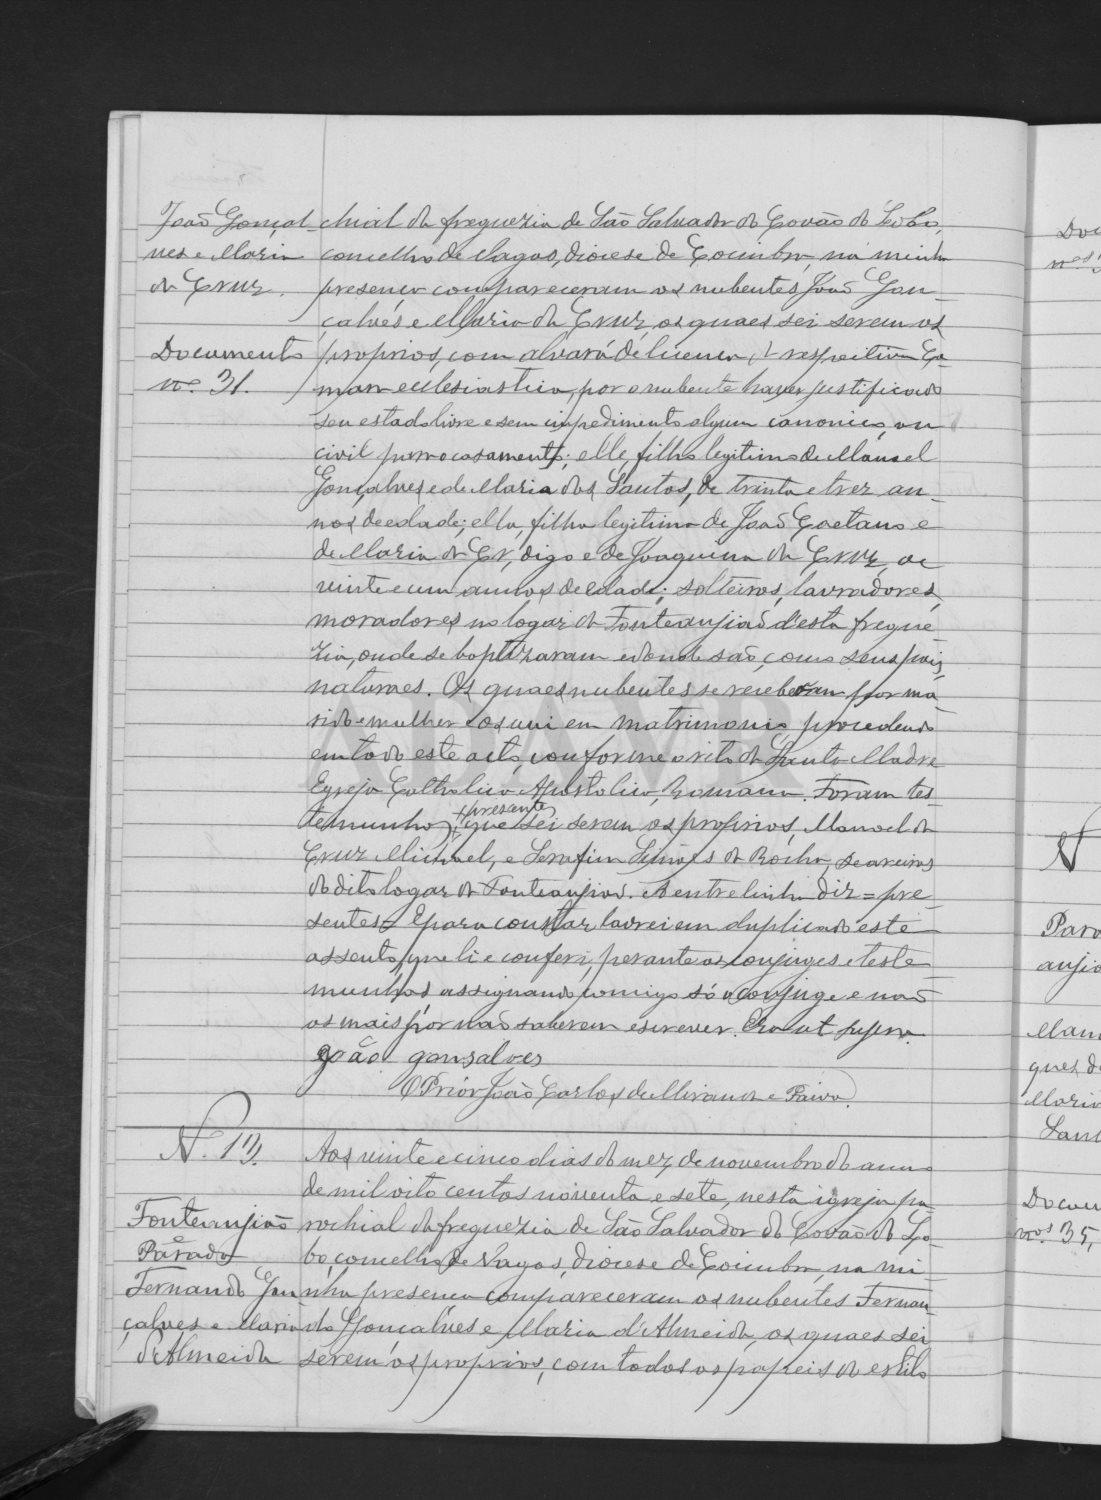 João Gonçal-
ves e Maria
da Cruz.
Documento
nº. 31.
chial da freguezia de São Salvador do Covão do Lobo,
concelho de Vagos, diocese de Coimbra, na minha
presença compareceram os nubentes João Gon-
çalves e Maria da Cruz, os quaes sei serem os
proprios, com alvará de licença da respectiva Ca-
mara ecclesiastica, por o nubente haver justificado
seu estado livre e sem impedimento algum canonico, ou
civil para o casamento; elle, filho legitimo de Manoel
Gonçalves e de Maria dos Santos, de trinta e trez an-
nos de edade; ella, filha legitima de João Caetano e
de Maria da Cr, digo e de Joaquina da Cruz, de
vinte e um annos de edade; solteiros, lavradores,
moradores no logar de Fonteanjião d'esta fregue-
zia, onde se baptizaram e d'onde são, como seus pais,
naturaes. Os quaes nubentes se receberam por ma-
rido e mulher e os uni em matrimonio, procedendo
em todo este acto, conforme o rito da Santa Madre
Egreja Catholica Apostolica, Romana. Foram tes-
presentes
temunhas, que sei serem os proprios, Manoel da
Cruz Michael, e Serafim Simões da Rocha, seareiros
do dito logar de Fonteanjião. A entrelinha diz = pre-
sentes = E para constar lavrei em duplicado este
assento, que li e conferi, perante os conjuges e teste-
munhas, assignando comigo só o conjuge e não
os mais por não saberem escrever. Era ut supra.
João gonsalves
O Prior João Carlos de Miranda e Paiva.
N. 13.
Fonteanjião
Parada
Fernando Gon
çalves e Maria
d'Almeida
Aos vinte e cinco dias do mez de novembro do anno
de mil oito centos noventa e sete, nesta igreja pa-
rochial da freguezia de São Salvador do Covão do Lo-
bo, concelho de Vagos, diocese de Coimbra, na mi-
nha presença compareceram os nubentes Fernan-
do Gonçalves e Maria d'Almeida, os quaes sei
serem os proprios, com todos os papeis do estilo
N
Docu
nos 35,